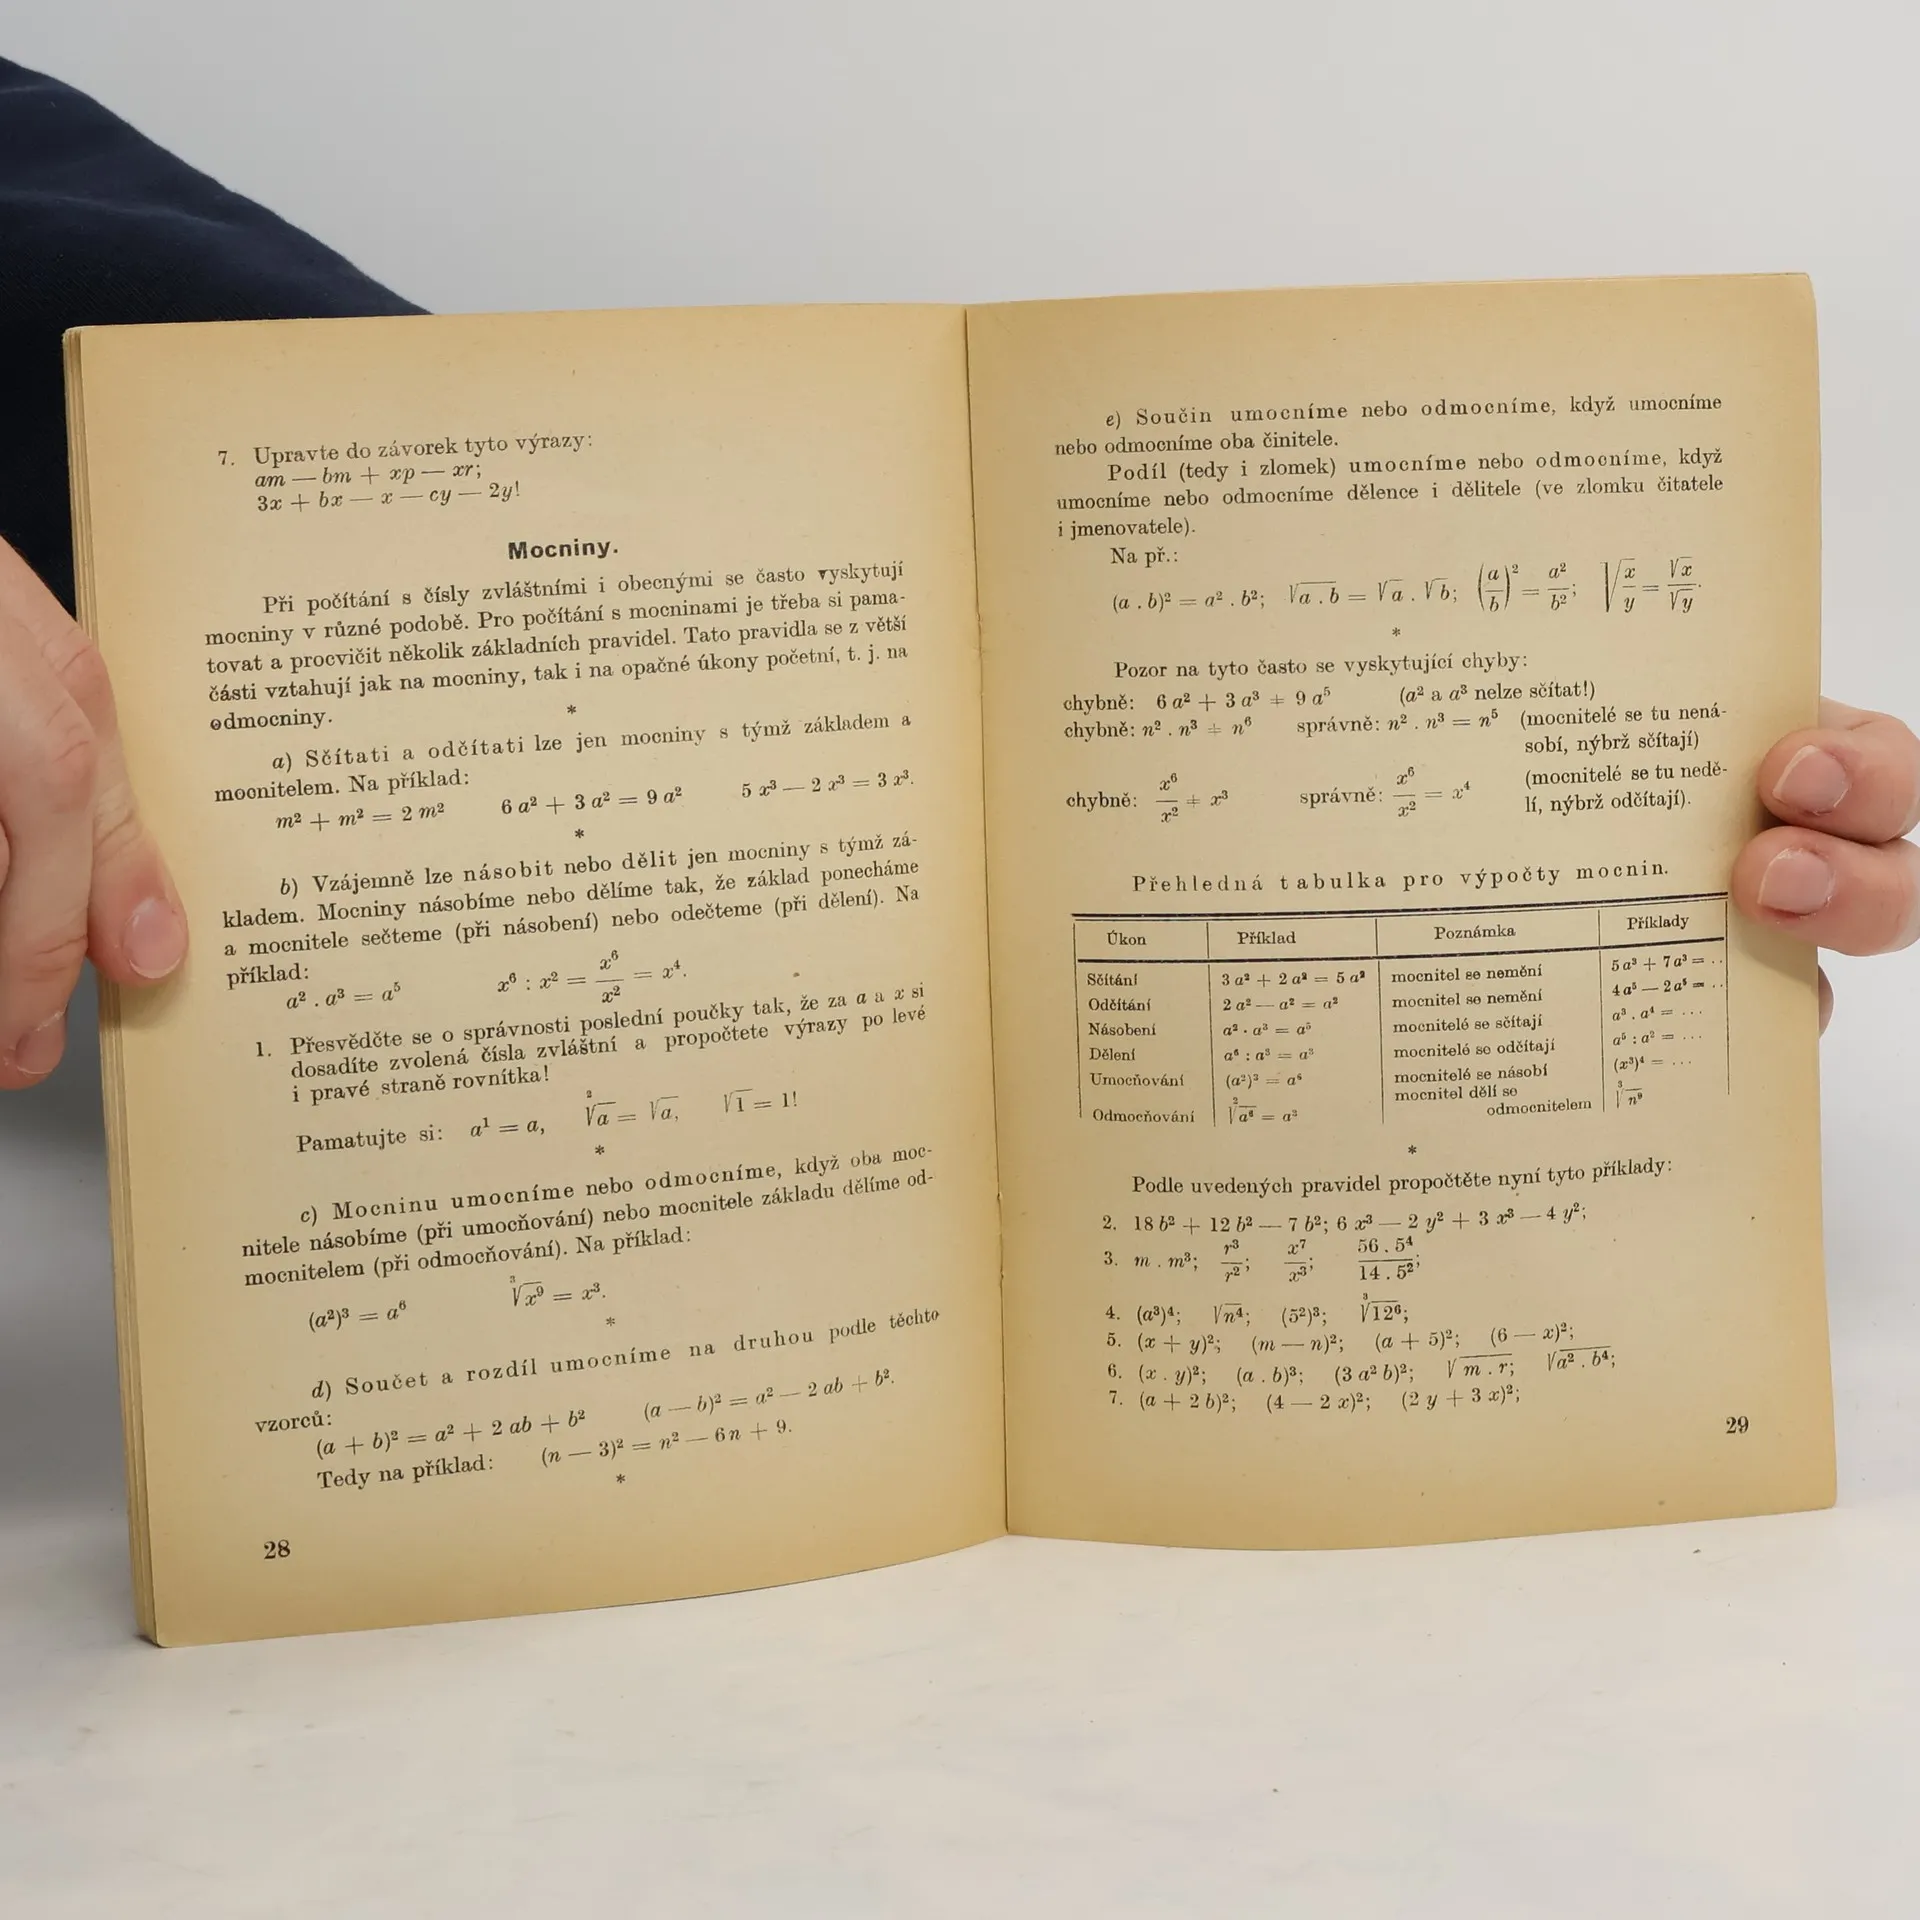 7. Upravte do závorek tyto výrazy:
am — bm + xp — xr;
3x + bx — x — cy — 2y!
Mocniny.
Při počítání s čísly zvláštními i obecnými se často vyskytují
mocniny v různé podobě. Pro počítání s mocninami je třeba si pama-
tovat a procvičit několik základních pravidel. Tato pravidla se z větší
části vztahují jak na mocniny, tak i na opačné úkony početní, t. j. na
odmocniny.
*
a) Sčítati a odčítati lze jen mocniny s týmž základem a
mocnitelem. Na příklad:
m² + m² = 2 m² 6 a² + 3 a² = 9 a² 5 x³ — 2 x³ = 3 x³.
*
b) Vzájemně lze násobit nebo dělit jen mocniny s týmž zá-
kladem. Mocniny násobíme nebo dělíme tak, že základ ponecháme
a mocnitele sečteme (při násobení) nebo odečteme (při dělení). Na
příklad:
a² . a³ = a⁵ x⁶ : x² = x⁶/x² = x⁴.
1. Přesvědčte se o správnosti poslední poučky tak, že za a a x si
dosadíte zvolená čísla zvláštní a propočtete výrazy po levé
i pravé straně rovnítka!
Pamatujte si: a¹ = a, ²√a = √a, √1 = 1!
*
c) Mocninu umocníme nebo odmocníme, když oba moc-
nitele násobíme (při umocňování) nebo mocnitele základu dělíme od-
mocnitelem (při odmocňování). Na příklad:
(a²)³ = a⁶ ³√x⁹ = x³.
*
d) Součet a rozdíl umocníme na druhou podle těchto
vzorců:
(a + b)² = a² + 2 ab + b² (a — b)² = a² — 2 ab + b².
Tedy na příklad: (n — 3)² = n² — 6n + 9.
*
28
e) Součin umocníme nebo odmocníme, když umocníme
nebo odmocníme oba činitele.
Podíl (tedy i zlomek) umocníme nebo odmocníme, když
umocníme nebo odmocníme dělence i dělitele (ve zlomku čitatele
i jmenovatele).
Na př.:
(a . b)² = a² . b²; √a . b = √a . √b; (a/b)² = a²/b²; √x/y = √x/√y.
*
Pozor na tyto často se vyskytující chyby:
chybně: 6 a² + 3 a³ ≠ 9 a⁵ (a² a a³ nelze sčítat!)
chybně: n² . n³ ≠ n⁶ správně: n² . n³ = n⁵ (mocnitelé se tu nená-
sobí, nýbrž sčítají)
chybně: x⁶/x² ≠ x³ správně: x⁶/x² = x⁴ (mocnitelé se tu nedě-
lí, nýbrž odčítají).
Přehledná tabulka pro výpočty mocnin.
Úkon Příklad Poznámka Příklady
Sčítání 3 a² + 2 a² = 5 a² mocnitel se nemění 5 a³ + 7 a³ = ..
Odčítání 2 a² — a² = a² mocnitel se nemění 4 a⁵ — 2 a⁵ = ..
Násobení a² . a³ = a⁵ mocnitelé se sčítají a³ . a⁴ = ...
Dělení a⁶ : a³ = a³ mocnitelé se odčítají a⁵ : a² = ...
Umocňování (a²)³ = a⁶ mocnitelé se násobí (x³)⁴ = ...
Odmocňování ²√a⁶ = a³ mocnitel dělí se
odmocnitelem ³√n⁹
*
Podle uvedených pravidel propočtěte nyní tyto příklady:
2. 18 b² + 12 b² — 7 b²; 6 x³ — 2 y² + 3 x³ — 4 y²;
3. m . m³; r³/r²; x⁷/x³; 56 . 5⁴/14 . 5²;
4. (a³)⁴; √n⁴; (5²)³; ³√12⁶;
5. (x + y)²; (m — n)²; (a + 5)²; (6 — x)²;
6. (x . y)²; (a . b)³; (3 a² b)²; √m . r; √a² . b⁴;
7. (a + 2 b)²; (4 — 2 x)²; (2 y + 3 x)²;
29